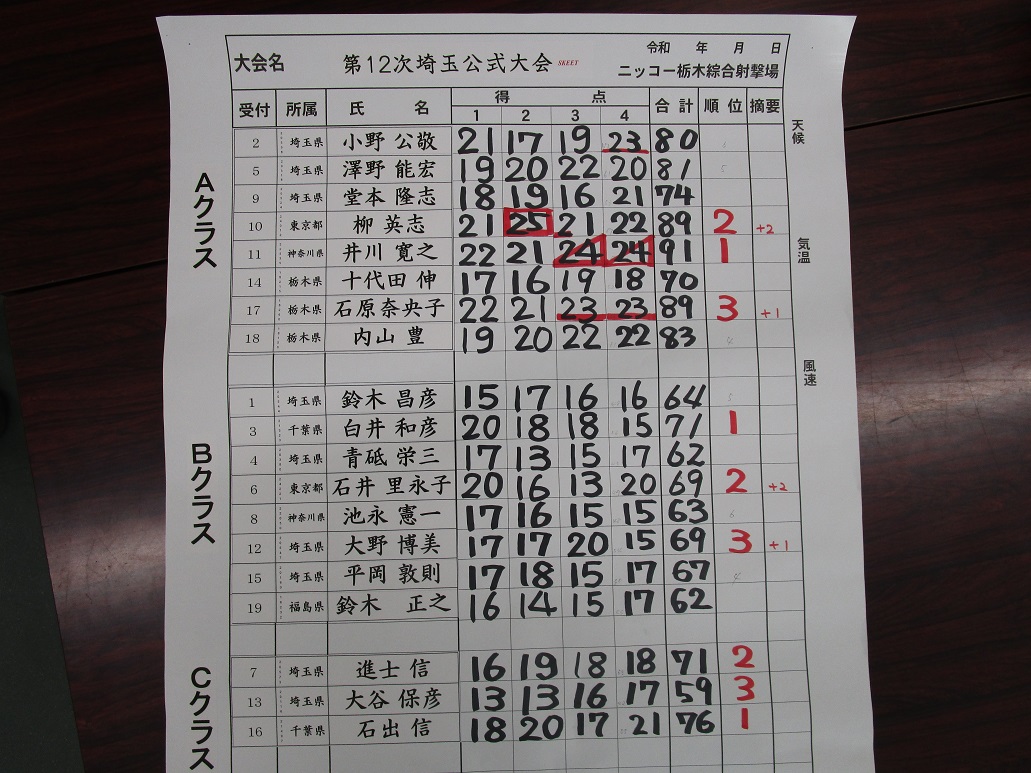 令和 年 月 日
大会名 第12次埼玉公式大会 SKEET ニッコー栃木綜合射撃場
受付 所属 氏 名 得 点 合計 順位 摘要
1 2 3 4
天候
気温
風速
Aクラス
2 埼玉県 小野 公敬 21 17 19 23 80
5 埼玉県 澤野 能宏 19 20 22 20 81
9 埼玉県 堂本 隆志 18 19 16 21 74
10 東京都 柳 英志 21 25 21 22 89 2 +2
11 神奈川県 井川 寛之 22 21 24 24 91 1
14 栃木県 十代田 伸 17 16 19 18 70
17 栃木県 石原奈央子 22 21 23 23 89 3 +1
18 栃木県 内山 豊 19 20 22 22 83
Bクラス
1 埼玉県 鈴木 昌彦 15 17 16 16 64
3 千葉県 白井 和彦 20 18 18 15 71 1
4 埼玉県 青砥 栄三 17 13 15 17 62
6 東京都 石井 里永子 20 16 13 20 69 2 +2
8 神奈川県 池永 憲一 17 16 15 15 63
12 埼玉県 大野 博美 17 17 20 15 69 3 +1
15 埼玉県 平岡 敦則 17 18 15 17 67
19 福島県 鈴木 正之 16 14 15 17 62
Cクラス
7 埼玉県 進士 信 16 19 18 18 71 2
13 埼玉県 大谷 保彦 13 13 16 17 59 3
16 千葉県 石出 信 18 20 17 21 76 1